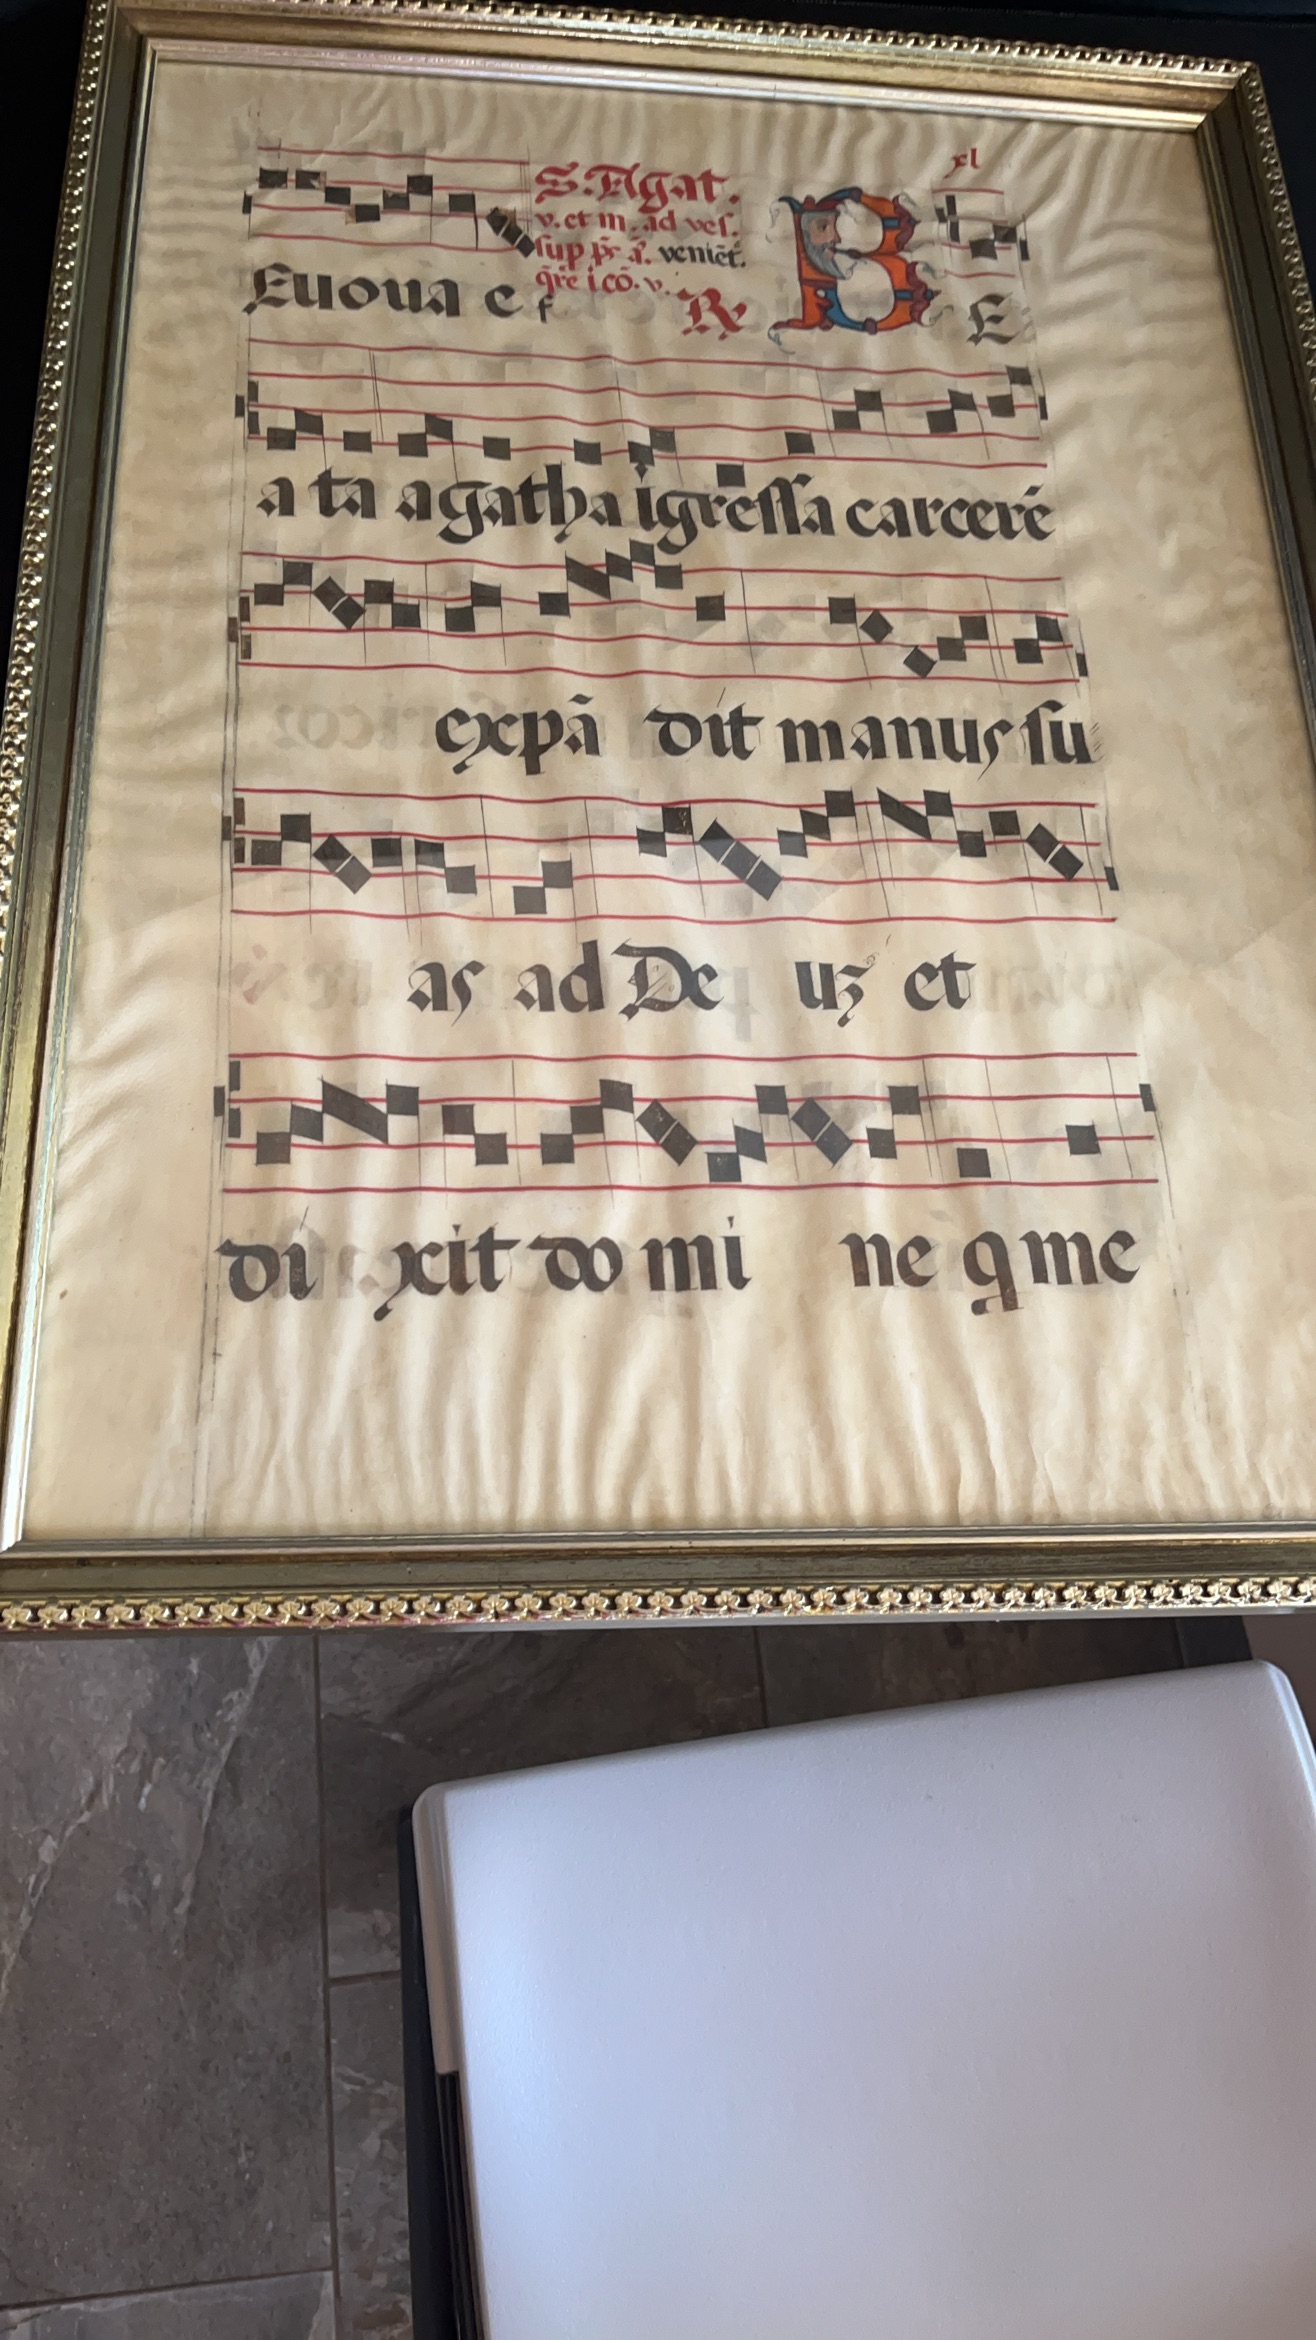 xl
S. Agat.
v. et m. ad vес.
sup ps a. veniēt.
qre i cō. v.
Euoua e f
℟ B E
a ta agatha igressa carcerē
expā dit manus su
as ad De uʒ et
di xit do mi ne q me